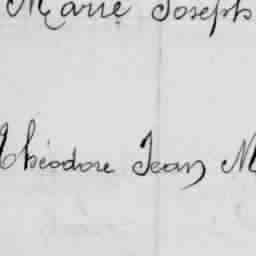 Marie Joseph
Théodore Jean M